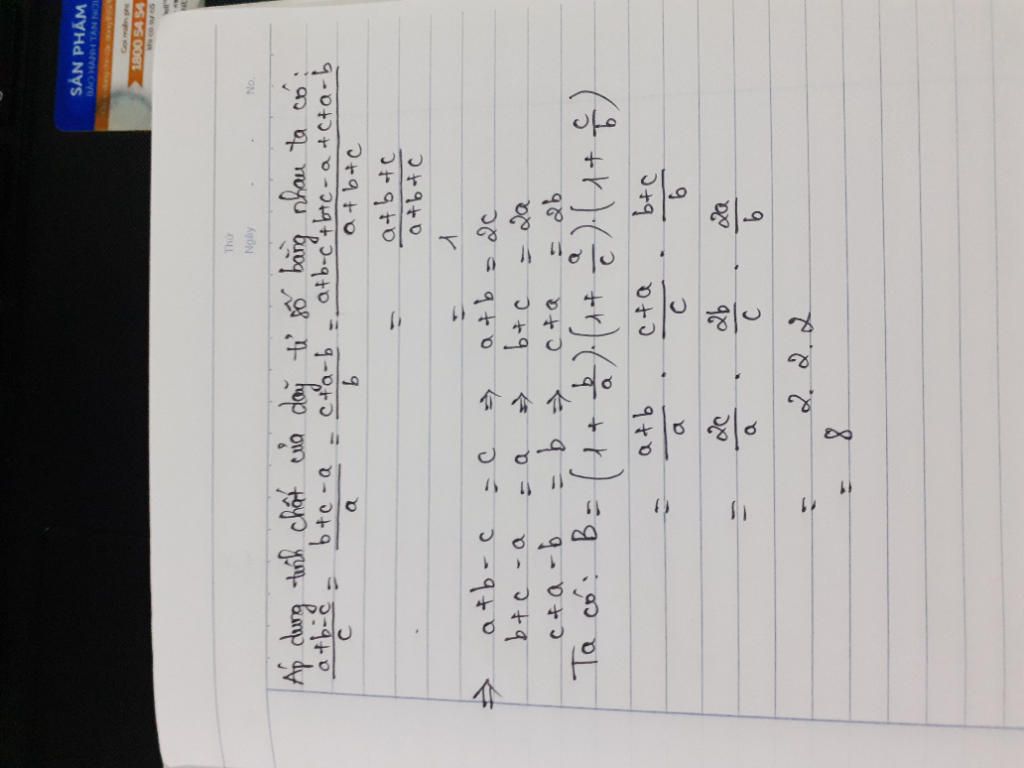 SẢN PHẨM
BẢO HÀNH TẬN NƠI
Gọi miễn phí
1800 54 54
khi có sự cố
Thứ
Ngày No.
Áp dụng tính chất của dãy tỉ số bằng nhau ta có:
(a+b-c)/c = (b+c-a)/a = (c+a-b)/b = (a+b-c+b+c-a+c+a-b)/(a+b+c)
= (a+b+c)/(a+b+c)
= 1
⇒ a+b-c = c ⇒ a+b = 2c
b+c-a = a ⇒ b+c = 2a
c+a-b = b ⇒ c+a = 2b
Ta có: B = (1 + b/a).(1 + a/c).(1 + c/b)
= (a+b)/a . (c+a)/c . (b+c)/b
= 2c/a . 2b/c . 2a/b
= 2.2.2
= 8